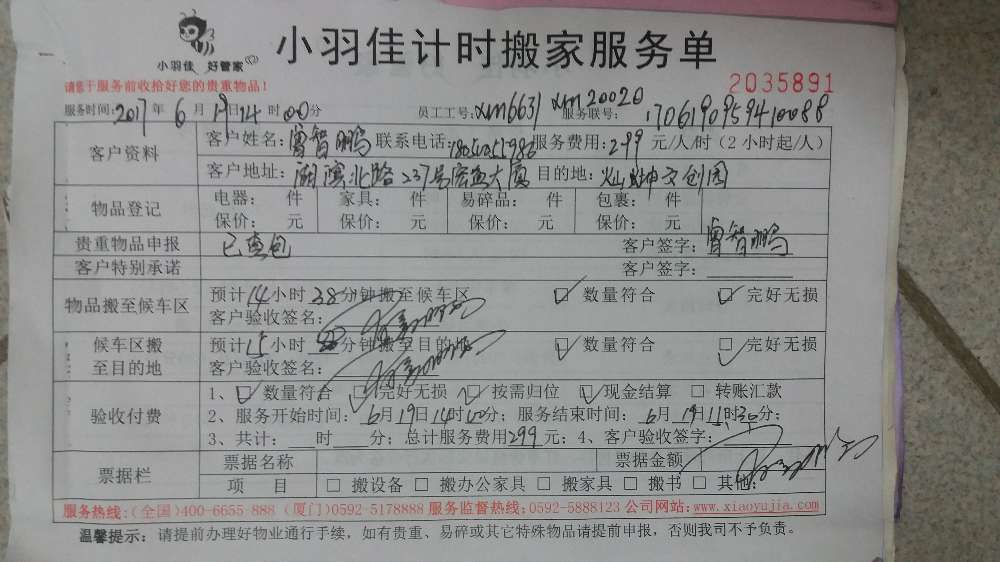 小羽佳 好管家
小羽佳计时搬家服务单
请您于服务前收拾好您的贵重物品！
2035891
服务时间：2017年6月19日14时00分 员工工号：xm6631 xm20020 服务联号：
客户资料 客户姓名：曾智鹏 联系电话： 服务费用：299元/人/时（2小时起/人）
客户地址：湖滨北路237号 大厦 目的地： 文创园
物品登记 电器： 件 家具： 件 易碎品： 件 包裹： 件
保价： 元 保价： 元 保价： 元 保价： 元
贵重物品申报 已查包 客户签字：曾智鹏
客户特别承诺 客户签字：
物品搬至候车区 预计14小时38分钟搬至候车区 数量符合 完好无损
客户验收签名：
候车区搬至目的地 预计15小时 分钟搬至目的地 数量符合 完好无损
客户验收签名：
验收付费 1、 数量符合 完好无损 按需归位 现金结算 转账汇款
2、服务开始时间：6月19日14时00分；服务结束时间：6月19日 时30分；
3、共计： 时 分；总计服务费用299元；4、客户验收签字：
票据栏 票据名称 票据金额
项 目 □ 搬设备 □ 搬办公家具 □ 搬家具 □ 搬书 □ 其他：
服务热线：(全国)400-6655-888 (厦门)0592-5178888 服务监督热线：0592-5888123 公司网站：www.xiaoyujia.com
温馨提示：请提前办理好物业通行手续，如有贵重、易碎或其它特殊物品请提前申报，否则我司不予负责。